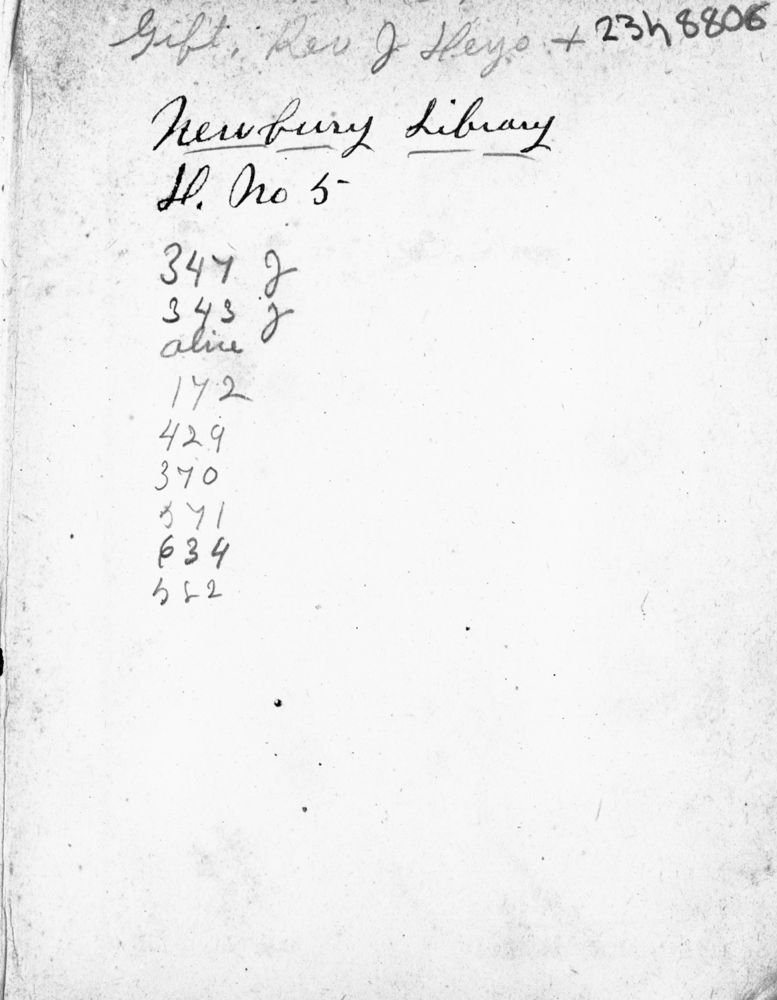 Gift, Rev J Heyo + 2348806
Newbury Library
H. No 5
347 J
343 J
alive
172
429
370
571
634
552